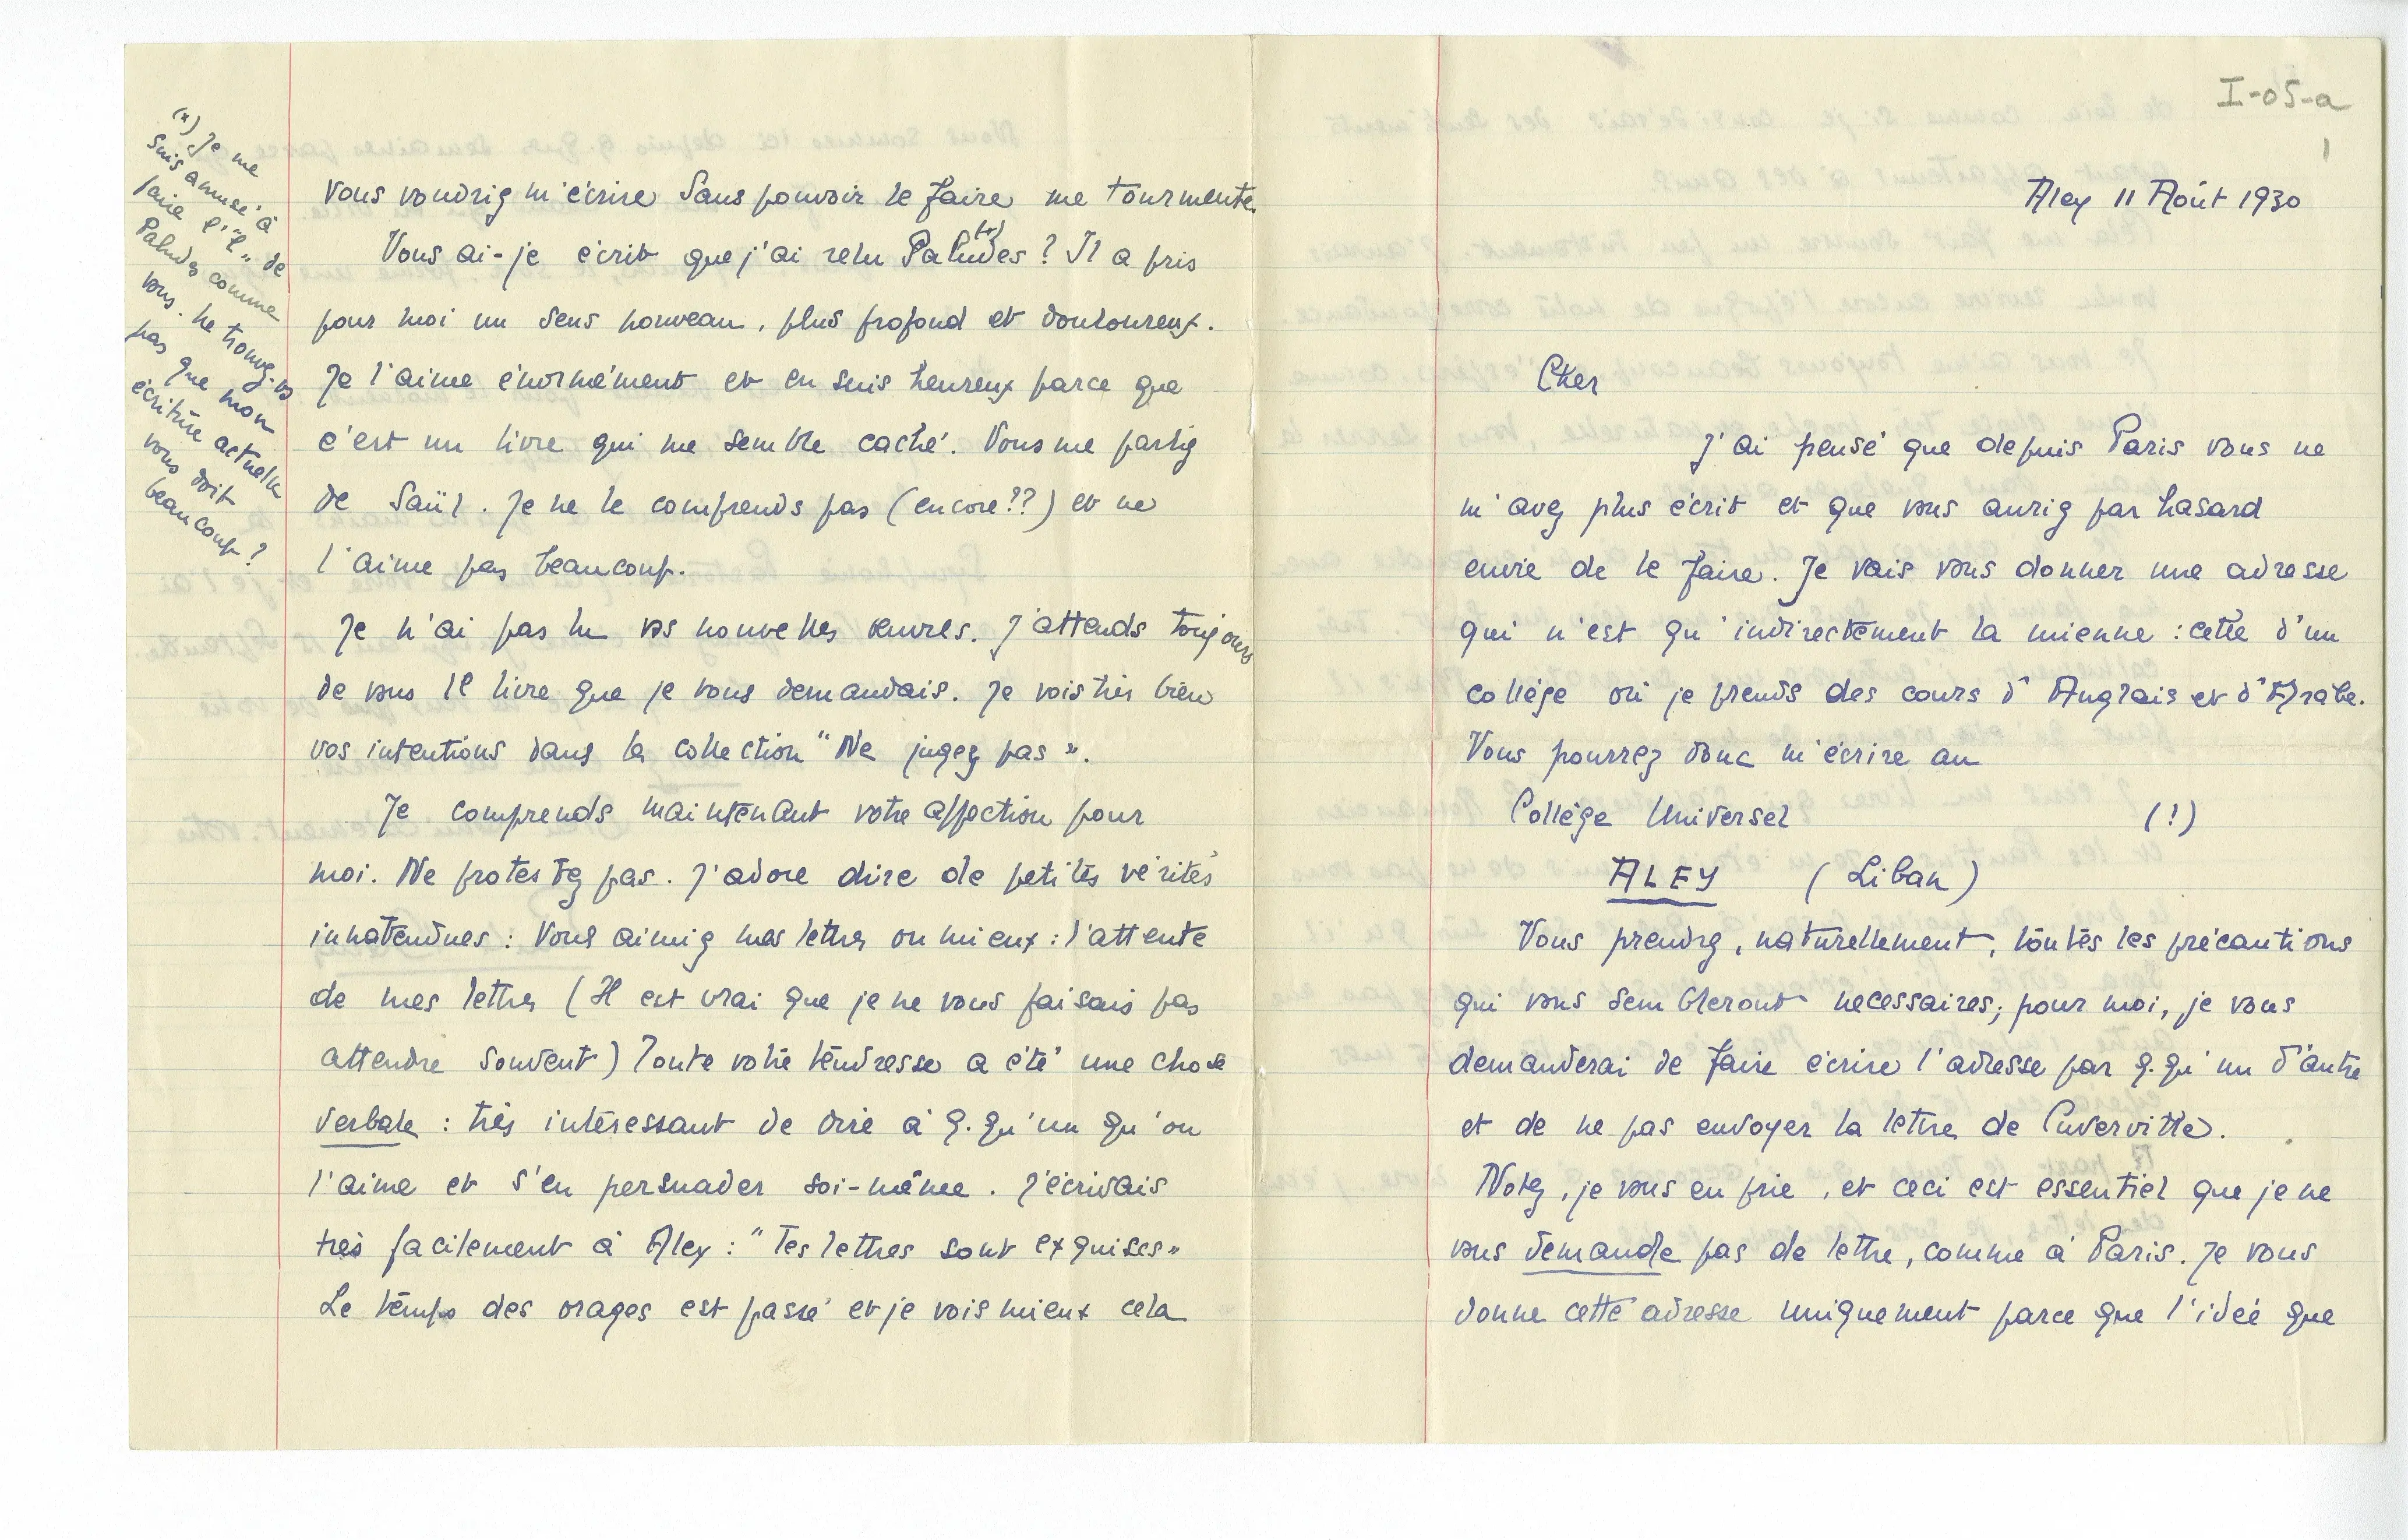 I-05-a
1
Aley 11 Août 1930
Cher
J'ai pensé que depuis Paris vous ne
m'avez plus écrit et que vous auriez par hasard
envie de le faire. Je vais vous donner une adresse
qui n'est qu'indirectement la mienne : celle d'un
collège où je prends des cours d'Anglais et d'Arabe.
Vous pourrez donc m'écrire au
Collège Universel (!)
ALEY (Liban)
Vous prendrez, naturellement, toutes les précautions
qui vous sembleront necessaires; pour moi, je vous
demanderai de faire écrire l'adresse par q.qu'un d'autre
et de ne pas envoyer la lettre de Cuverville.
Notez, je vous en prie, et ceci est essentiel que je ne
vous demande pas de lettre, comme à Paris. Je vous
donne cette adresse uniquement parce que l'idée que
vous voudriez m'écrire sans pouvoir le faire me tourmente.
Vous ai-je écrit que j'ai relu Paludes (*) ? Il a pris
pour moi un sens nouveau, plus profond et douloureux.
Je l'aime énormément et en suis heureux parce que
c'est un livre qui me semble caché. Vous me parliez
de Saül. Je ne le comprends pas (encore??) et ne
l'aime pas beaucoup.
Je n'ai pas lu vos nouvelles œuvres. J'attends toujours
de vous le livre que je vous demandais. Je vois très bien
vos intentions dans la collection "Ne jugez pas".
Je comprends maintenant votre affection pour
moi. Ne protestez pas. J'adore dire de petites vérités
innatendues : Vous aimiez mes lettres ou mieux : l'attente
de mes lettres (Il est vrai que je ne vous faisais pas
attendre souvent) Toute votre tendresse a été une chose
verbale : très intéressant de dire à q.qu'un qu'on
l'aime et s'en persuader soi-même. J'écrivais
très facilement à Alex : "Tes lettres sont exquises"
Le temps des orages est passé et je vois mieux cela
(*) Je me
suis amusé à
faire l'"l" de
Paludes comme
vous. Ne trouvez-vs
pas que mon
écriture actuelle
vous doit
beaucoup ?